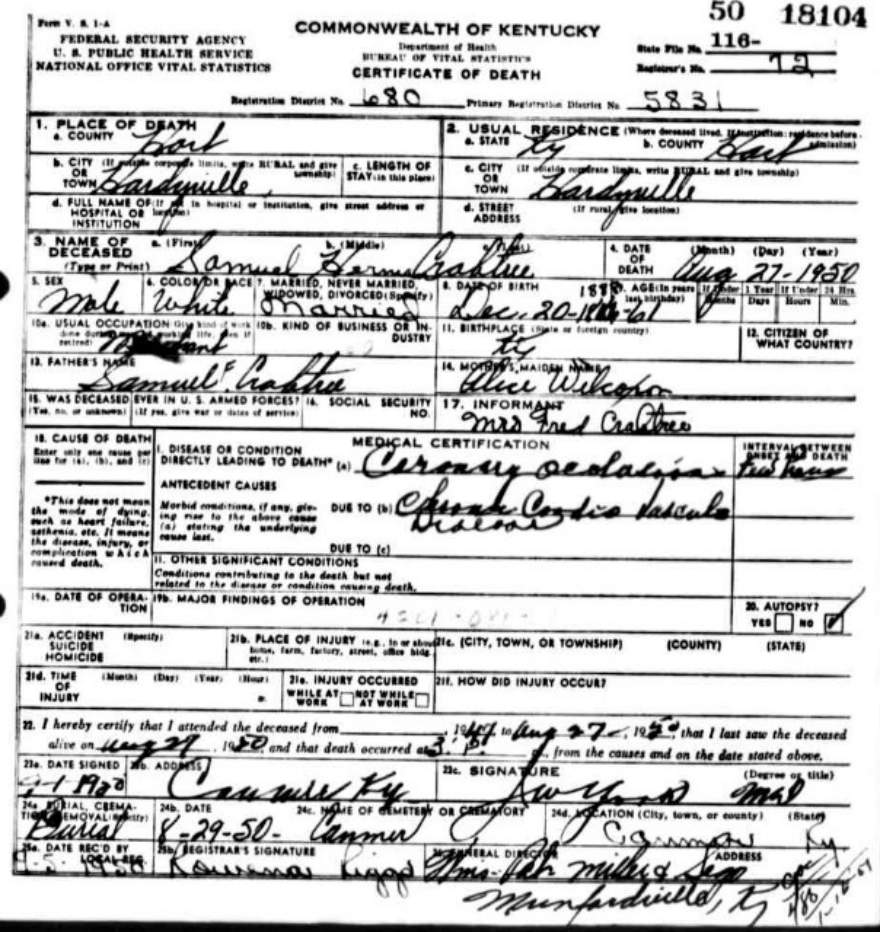 50 18104
Form V. S. 1-A
FEDERAL SECURITY AGENCY
U. S. PUBLIC HEALTH SERVICE
NATIONAL OFFICE VITAL STATISTICS
COMMONWEALTH OF KENTUCKY
Department of Health
BUREAU OF VITAL STATISTICS
CERTIFICATE OF DEATH
State File No. 116-
Registrar's No. 72
Registration District No. 680 Primary Registration District No. 5831
1. PLACE OF DEATH
a. COUNTY Hart
2. USUAL RESIDENCE (Where deceased lived. If institution: residence before admission)
a. STATE Ky b. COUNTY Hart
b. CITY (If outside corporate limits, write RURAL and give township) OR TOWN Hardyville
c. LENGTH OF STAY (in this place)
c. CITY (If outside corporate limits, write RURAL and give township) OR TOWN Hardyville
d. FULL NAME OF (If not in hospital or institution, give street address or location) HOSPITAL OR INSTITUTION
d. STREET ADDRESS (If rural, give location)
3. NAME OF DECEASED (Type or Print) a. (First) b. (Middle) c. (Last)
Samuel Crabtree
4. DATE OF DEATH (Month) (Day) (Year)
Aug 27-1950
5. SEX Male
6. COLOR OR RACE White
7. MARRIED, NEVER MARRIED, WIDOWED, DIVORCED (Specify) Married
8. DATE OF BIRTH Dec. 20-
9. AGE (In years last birthday) 61
If Under 1 Year Months Days
If Under 24 Hrs. Hours Min.
10a. USUAL OCCUPATION (Give kind of work done during most of working life, even if retired)
10b. KIND OF BUSINESS OR INDUSTRY
11. BIRTHPLACE (State or foreign country) Ky
12. CITIZEN OF WHAT COUNTRY?
13. FATHER'S NAME
Samuel F. Crabtree
14. MOTHER'S MAIDEN NAME
Alice
15. WAS DECEASED EVER IN U. S. ARMED FORCES? (Yes, no, or unknown) (If yes, give war or dates of service)
16. SOCIAL SECURITY NO.
17. INFORMANT
Mrs Fred Crabtree
18. CAUSE OF DEATH
Enter only one cause per line for (a), (b), and (c)
*This does not mean the mode of dying, such as heart failure, asthenia, etc. It means the disease, injury, or complication which caused death.
MEDICAL CERTIFICATION
I. DISEASE OR CONDITION DIRECTLY LEADING TO DEATH* (a) Coronary occlusion
INTERVAL BETWEEN ONSET AND DEATH
Few hours
ANTECEDENT CAUSES
Morbid conditions, if any, giving rise to the above cause (a) stating the underlying cause last.
DUE TO (b) Chronic Cardio Vascular Disease
DUE TO (c)
II. OTHER SIGNIFICANT CONDITIONS
Conditions contributing to the death but not related to the disease or condition causing death.
19a. DATE OF OPERATION
19b. MAJOR FINDINGS OF OPERATION
20. AUTOPSY?
YES NO ✓
21a. ACCIDENT SUICIDE HOMICIDE (Specify)
21b. PLACE OF INJURY (e.g., in or about home, farm, factory, street, office bldg., etc.)
21c. (CITY, TOWN, OR TOWNSHIP) (COUNTY) (STATE)
21d. TIME OF INJURY (Month) (Day) (Year) (Hour)
21e. INJURY OCCURRED WHILE AT WORK NOT WHILE AT WORK
21f. HOW DID INJURY OCCUR?
22. I hereby certify that I attended the deceased from , 1947 to Aug 27, 1950, that I last saw the deceased
alive on Aug 27, 1950 and that death occurred at , from the causes and on the date stated above.
23a. DATE SIGNED 9-1 1950
23b. ADDRESS Canmer Ky
23c. SIGNATURE (Degree or title) MD
24a. BURIAL, CREMATION, REMOVAL (Specify) Burial
24b. DATE 8-29-50-
24c. NAME OF CEMETERY OR CREMATORY Canmer
24d. LOCATION (City, town, or county) (State) Canmer Ky
25a. DATE REC'D BY LOCAL REG. 9-5-1950
25b. REGISTRAR'S SIGNATURE Rowena Riggs
26. FUNERAL DIRECTOR ADDRESS
Miller & Sego
Munfordville, Ky